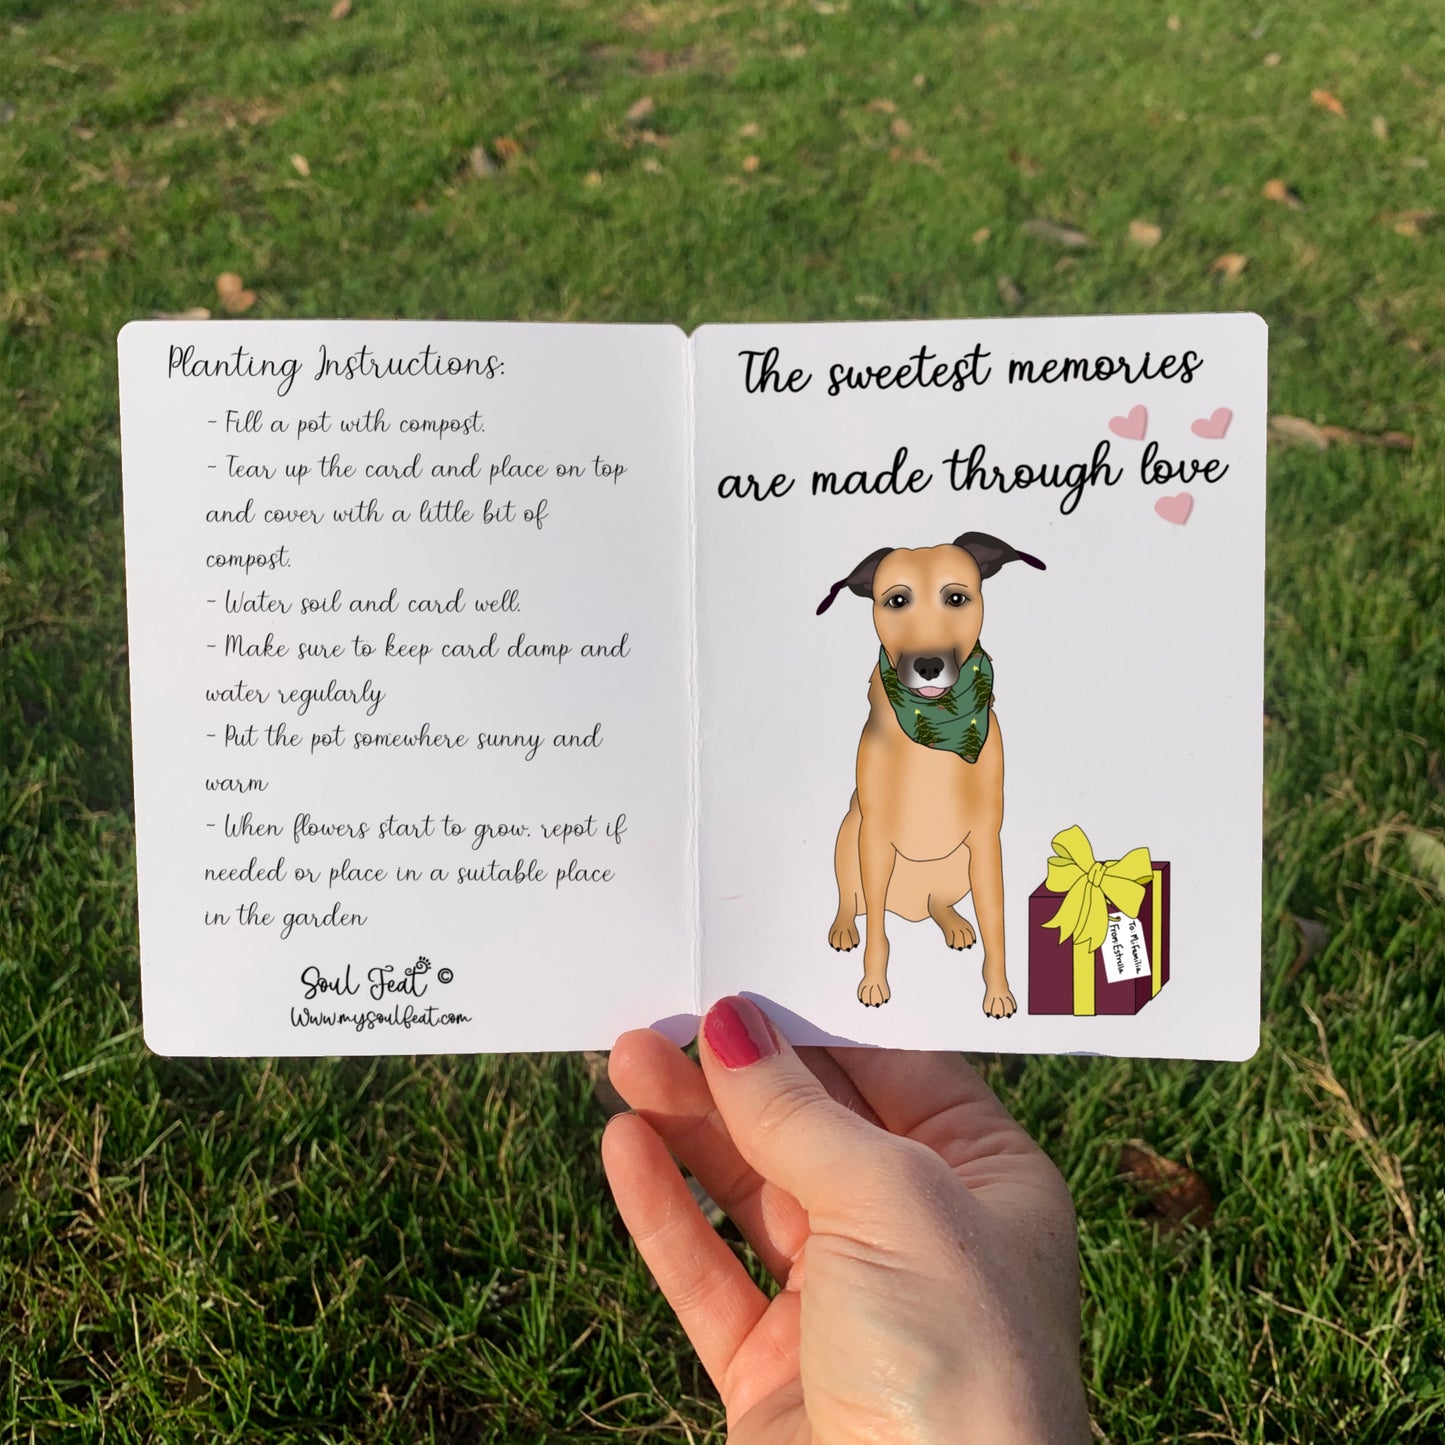 Planting Instructions:
- Fill a pot with compost.
- Tear up the card and place on top
and cover with a little bit of
compost.
- Water soil and card well.
- Make sure to keep card damp and
water regularly
- Put the pot somewhere sunny and
warm
- When flowers start to grow, repot if
needed or place in a suitable place
in the garden
Soul Feat ©
Www.mysoulfeat.com
The sweetest memories
are made through love
To: Mi familia
From: Estrella